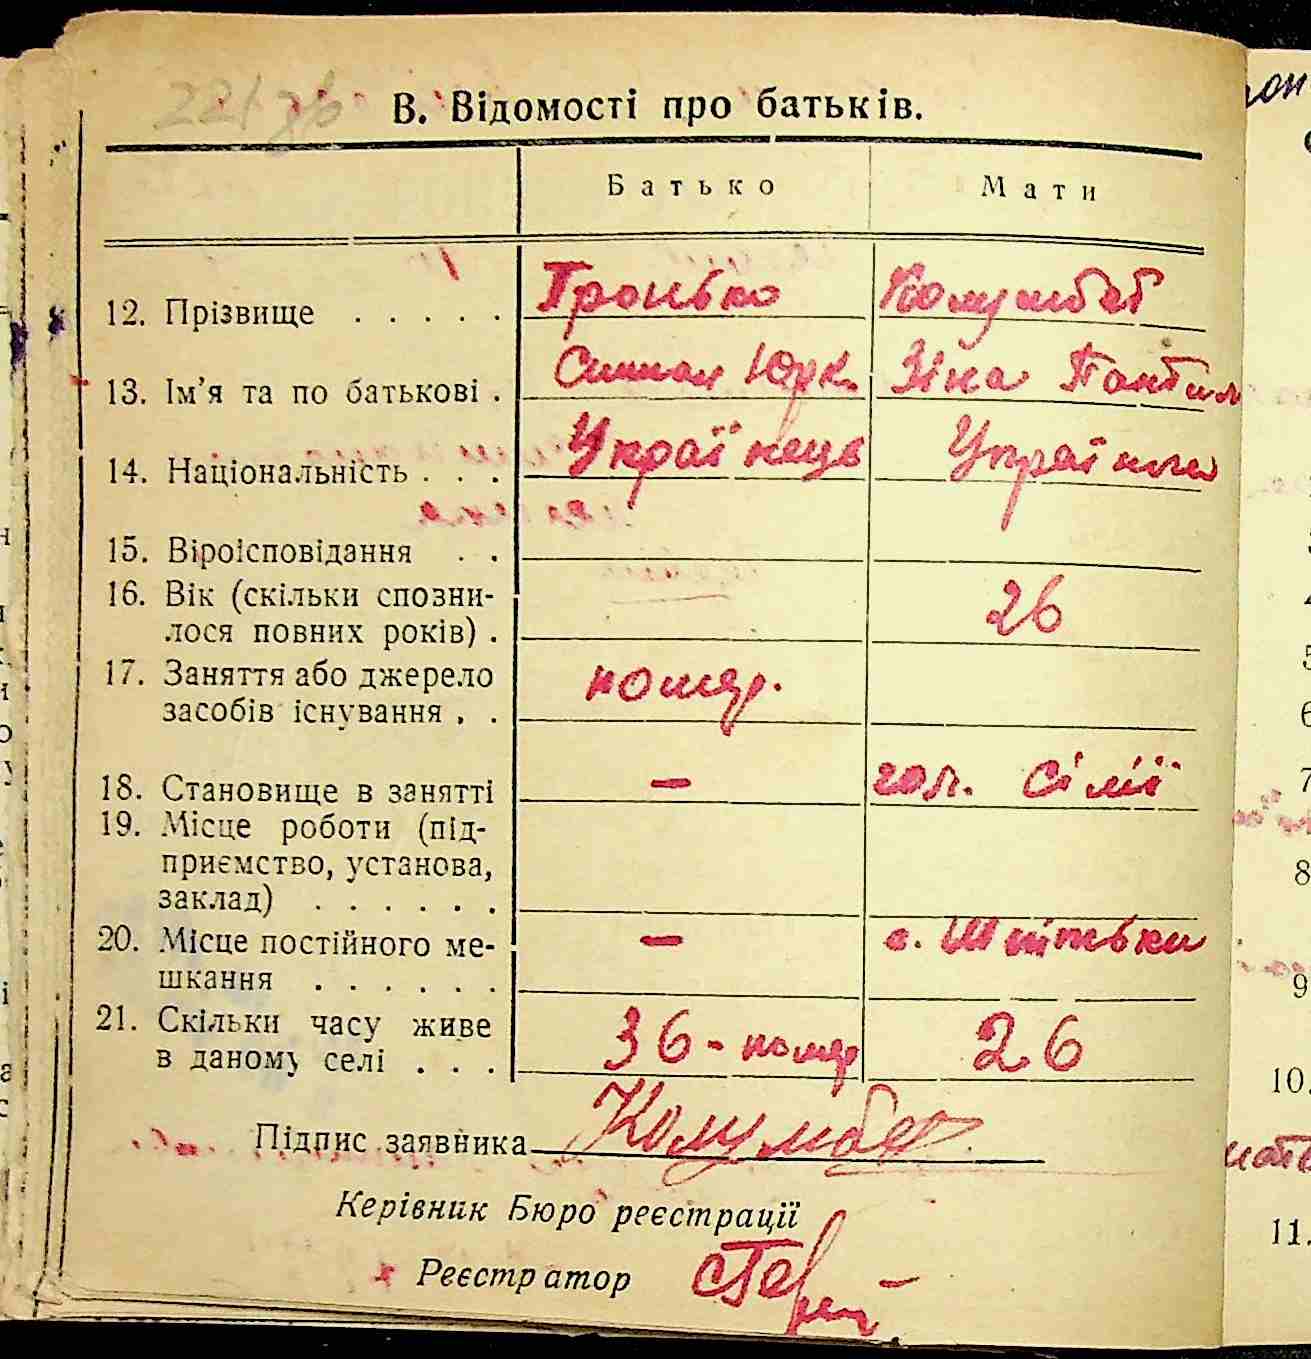 В. Відомості про батьків.
Батько Мати
12. Прізвище . . . . . Гронько Колумбет
13. Ім'я та по батькові . Симон Юрк. Зіна Пантил
14. Національність . . . Українець Українка
15. Віроісповідання . .
16. Вік (скільки спозни-
лося повних років) . 26
17. Заняття або джерело помер.
засобів існування . .
18. Становище в занятті — Сімії
19. Місце роботи (під-
приємство, установа,
заклад) . . . . . .
20. Місце постійного ме- — с.
шкання . . . . . .
21. Скільки часу живе
в даному селі . . . 36 - помер 26
Підпис заявника Колумбет
Керівник Бюро реєстрації
Реєстратор
8
9
10.
11.